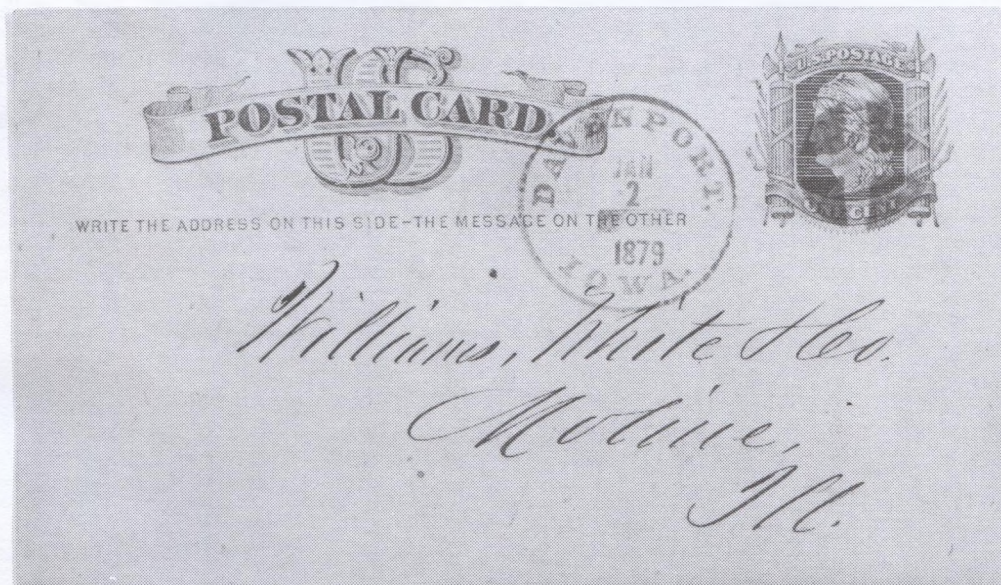 US
POSTAL CARD.
U.S. POSTAGE
ONE CENT
WRITE THE ADDRESS ON THIS SIDE-THE MESSAGE ON THE OTHER
DAVENPORT,
JAN
2
1879
IOWA.
Williams, White & Co.
Moline,
Ill.